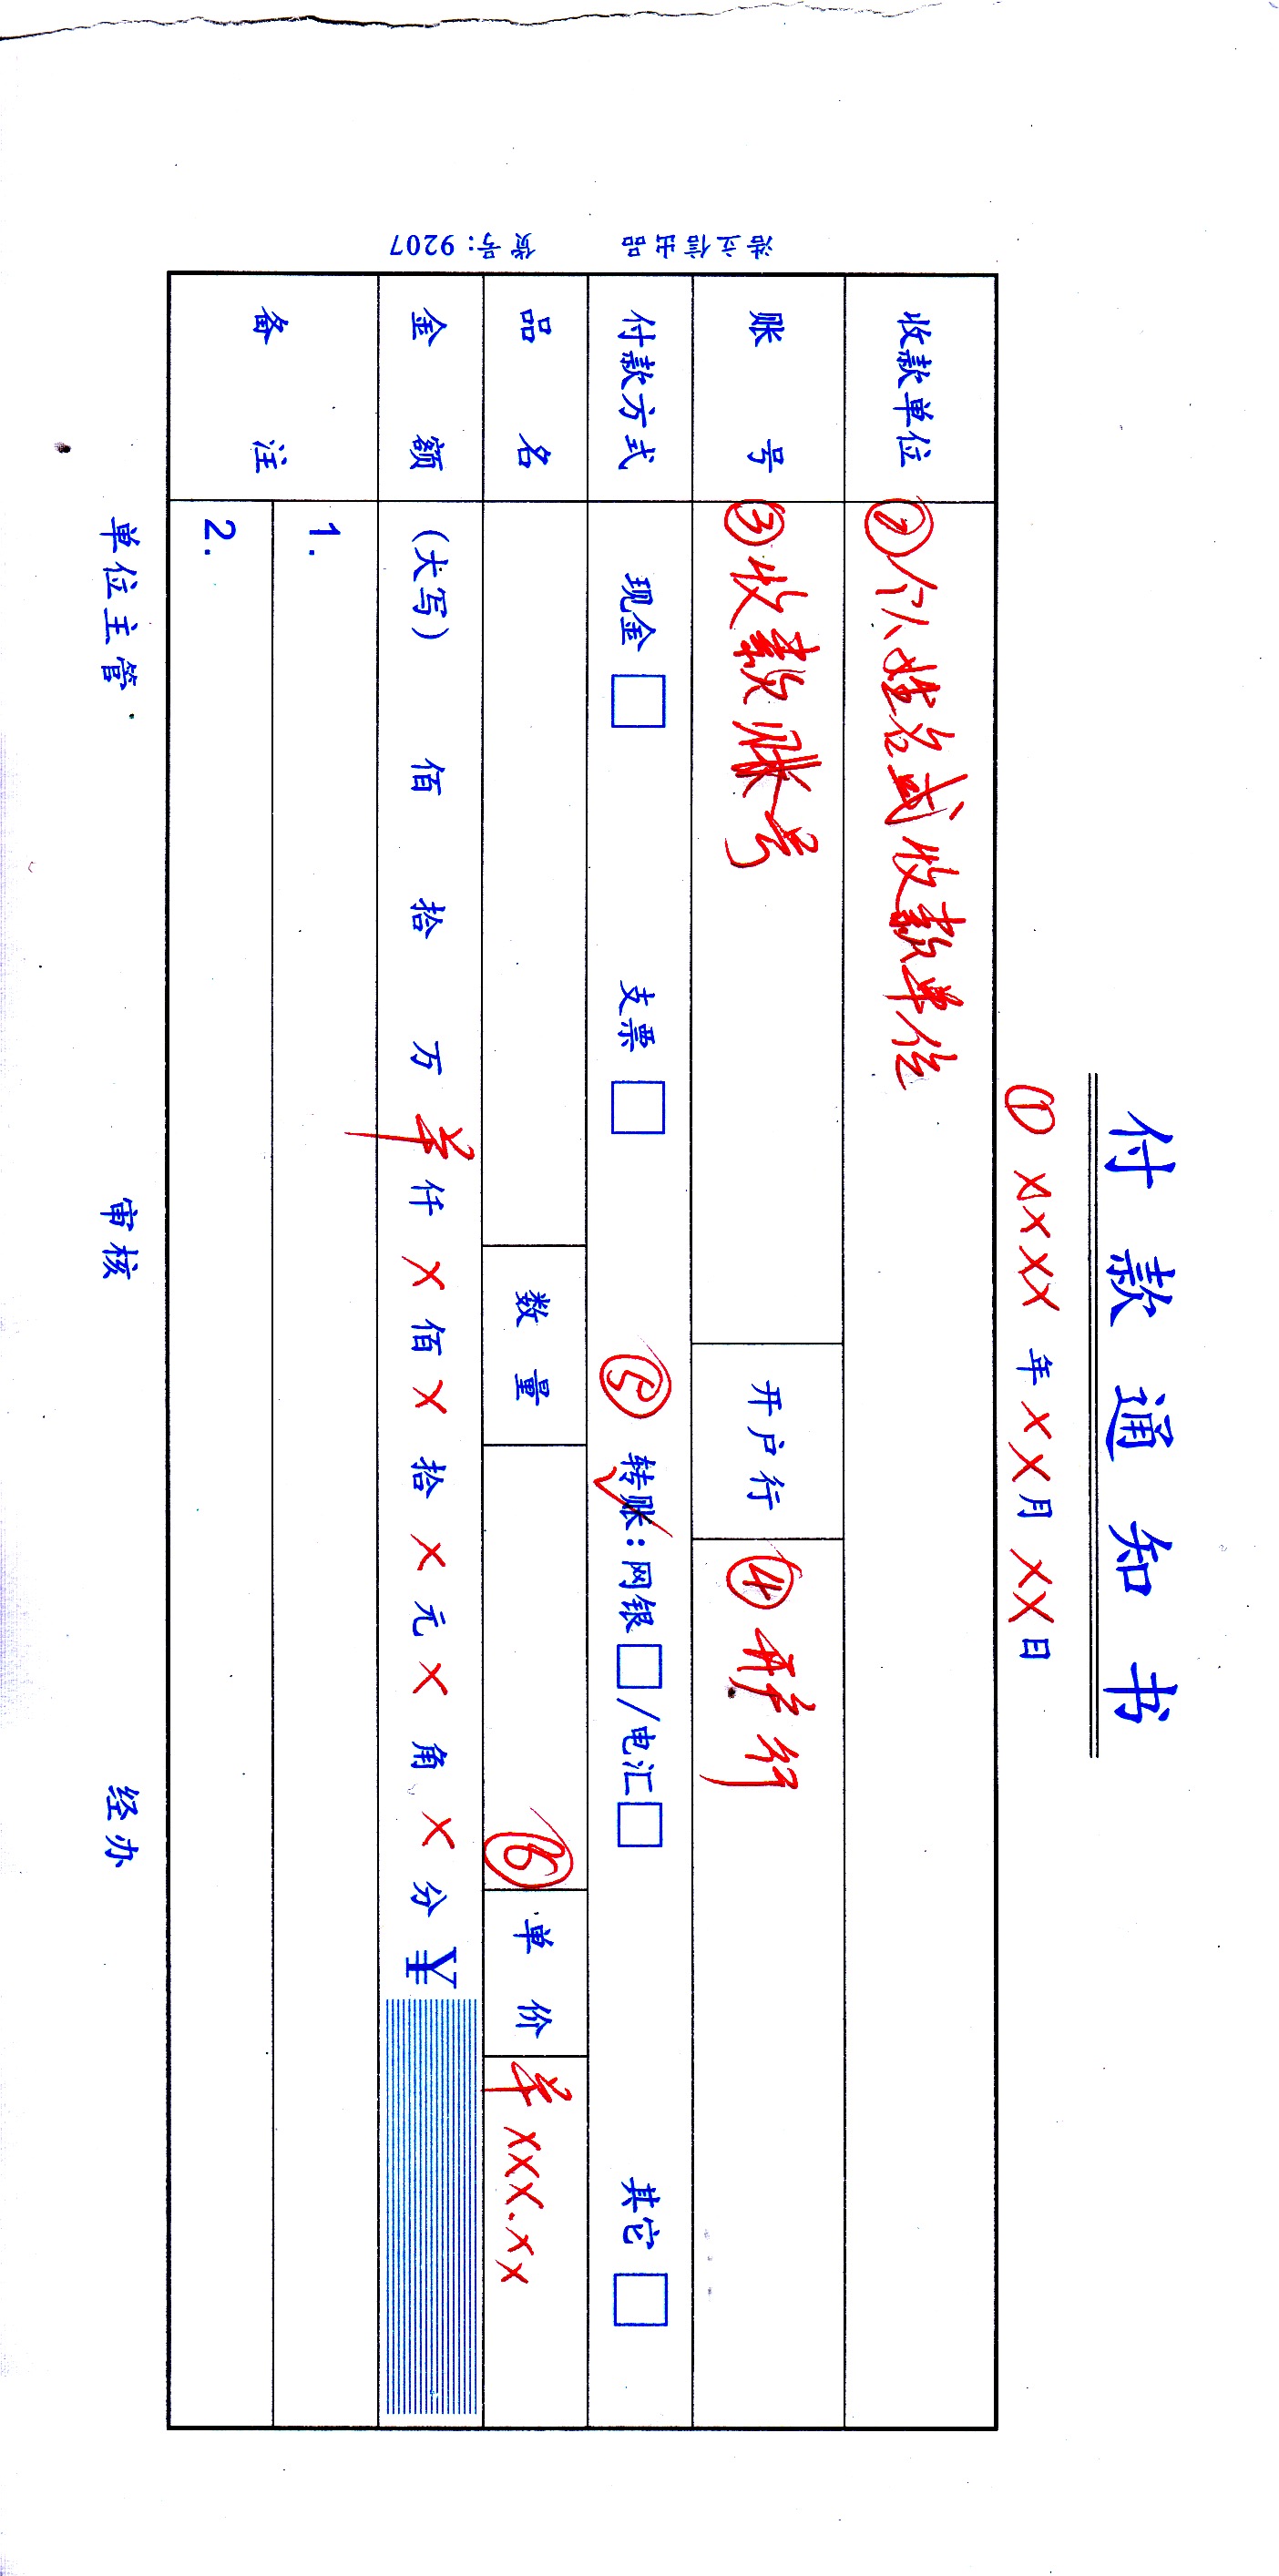 付款通知书
① XXXX 年 XX 月 XX 日
收款单位 ②个人姓名或收款单位
账号 ③收款账号 开户行 ④开户行
付款方式 现金 □ 支票 □ ⑤ 转账：网银 □ / 电汇 □ 其它 □
品名 数量 ⑥ 单价 ¥ XXX.XX
金额 (大写) 佰 拾 万 ¥ 仟 X 佰 X 拾 X 元 X 角 X 分 ¥
备注 1.
2.
单位主管 审核 经办
浩立信出品 货号：9207